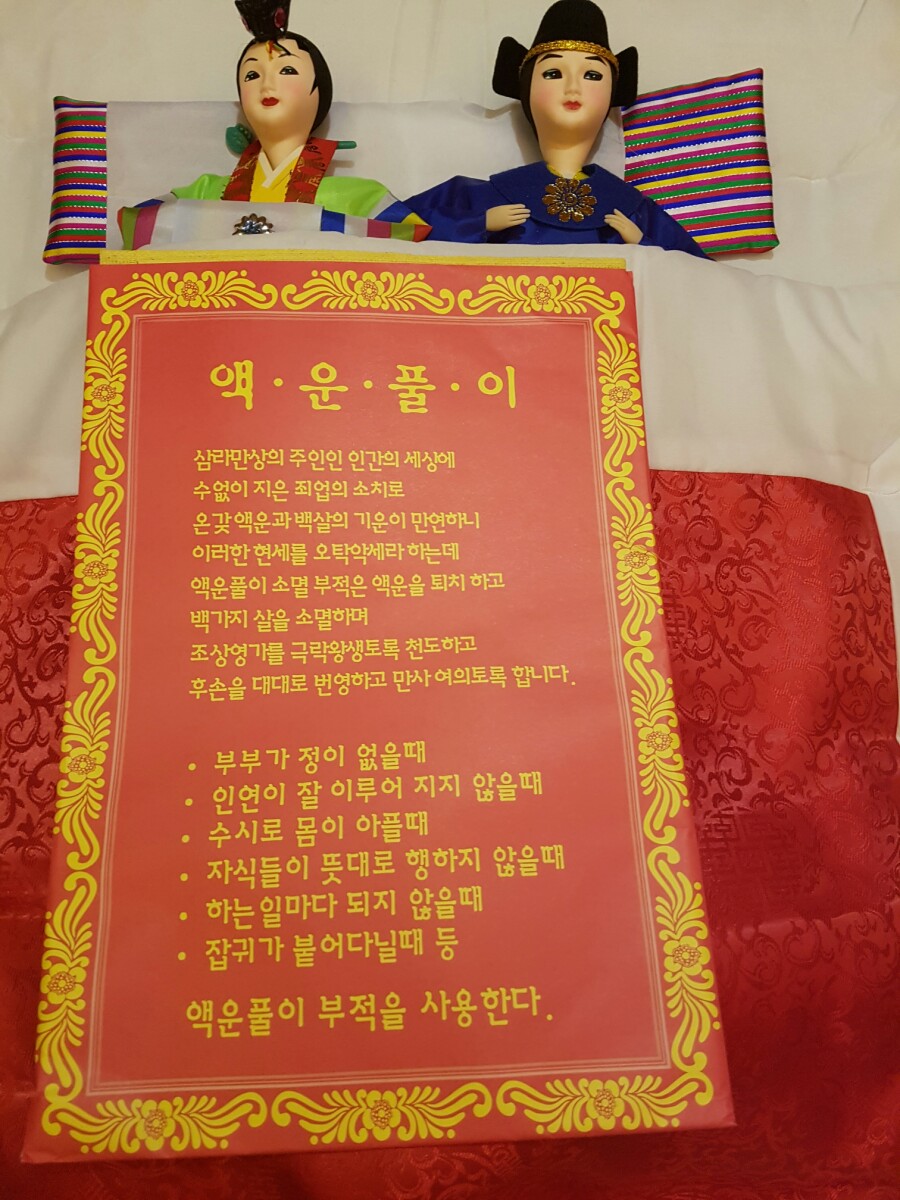 액·운·풀·이
삼라만상의 주인인 인간의 세상에
수없이 지은 죄업의 소치로
온갖 액운과 백살의 기운이 만연하니
이러한 현세를 오탁악세라 하는데
액운풀이 소멸 부적은 액운을 퇴치 하고
백가지 살을 소멸하며
조상영가를 극락왕생토록 천도하고
후손을 대대로 번영하고 만사 여의토록 합니다.
• 부부가 정이 없을때
• 인연이 잘 이루어 지지 않을때
• 수시로 몸이 아플때
• 자식들이 뜻대로 행하지 않을때
• 하는일마다 되지 않을때
• 잡귀가 붙어다닐때 등
액운풀이 부적을 사용한다.